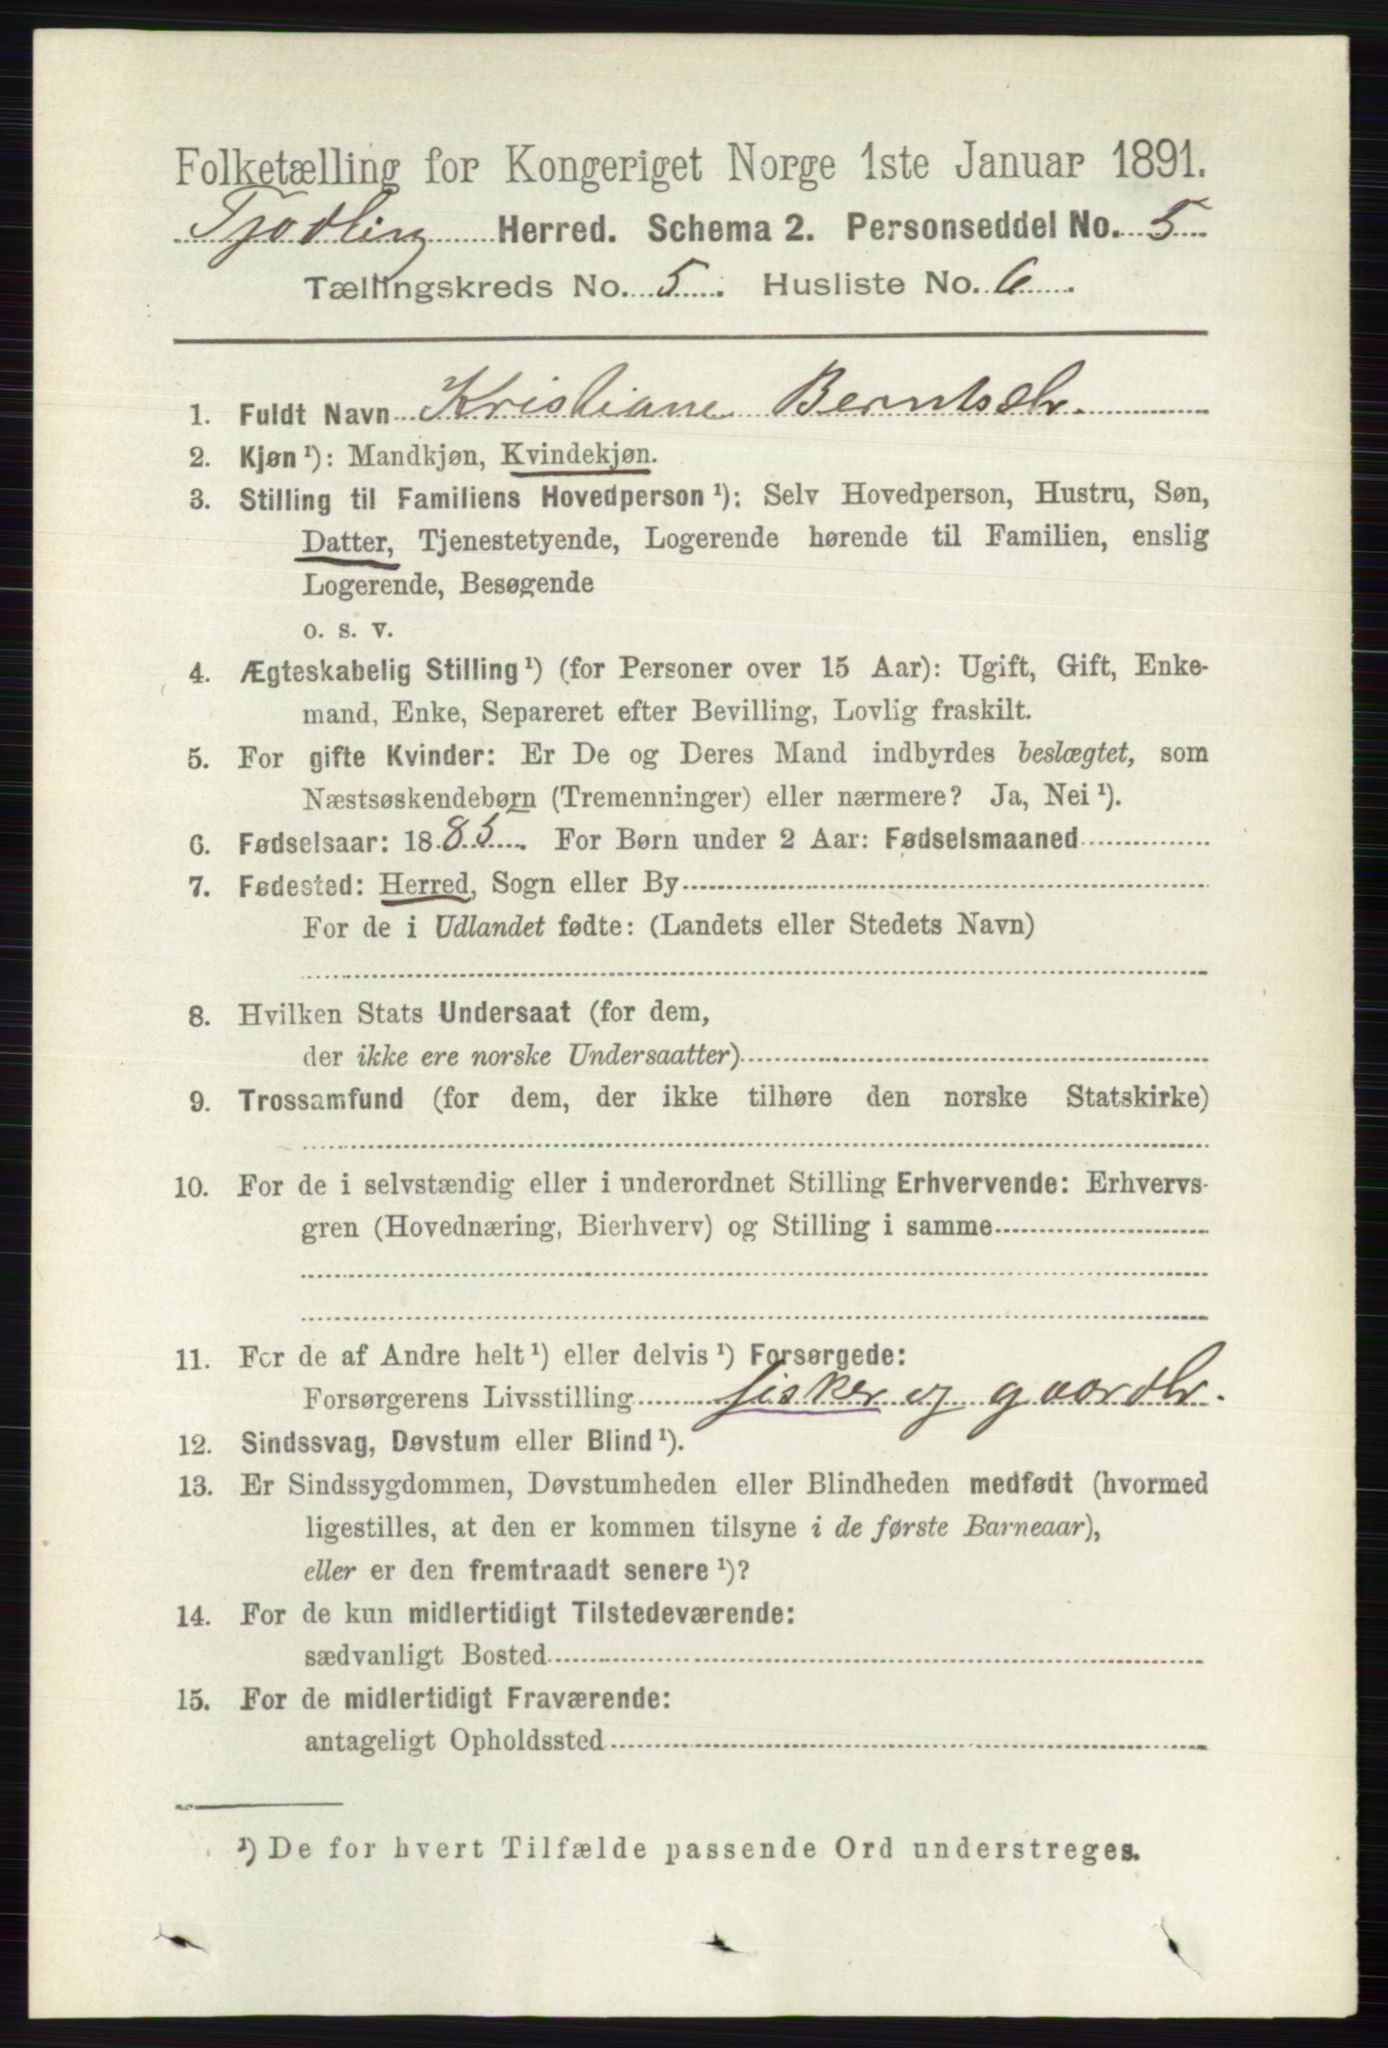 Folketælling for Kongeriget Norge 1ste Januar 1891.
Tjodling Herred. Schema 2. Personseddel No. 5
Tællingskreds No. 5. Husliste No. 6.
1. Fuldt Navn Kristiane Berntsdtr.
2. Kjøn ¹): Mandkjøn, Kvindekjøn.
3. Stilling til Familiens Hovedperson ¹): Selv Hovedperson, Hustru, Søn,
Datter, Tjenestetyende, Logerende hørende til Familien, enslig
Logerende, Besøgende
o. s. v.
4. Ægteskabelig Stilling ¹) (for Personer over 15 Aar): Ugift, Gift, Enke-
mand, Enke, Separeret efter Bevilling, Lovlig fraskilt.
5. For gifte Kvinder: Er De og Deres Mand indbyrdes beslægtet, som
Næstsøskendebørn (Tremenninger) eller nærmere? Ja, Nei ¹).
6. Fødselsaar: 1885. For Børn under 2 Aar: Fødselsmaaned
7. Fødested: Herred, Sogn eller By
For de i Udlandet fødte: (Landets eller Stedets Navn)
8. Hvilken Stats Undersaat (for dem,
der ikke ere norske Undersaatter)
9. Trossamfund (for dem, der ikke tilhøre den norske Statskirke)
10. For de i selvstændig eller i underordnet Stilling Erhvervende: Erhvervs-
gren (Hovednæring, Bierhverv) og Stilling i samme
11. For de af Andre helt ¹) eller delvis ¹) Forsørgede:
Forsørgerens Livsstilling fisker og gaardbr.
12. Sindssvag, Døvstum eller Blind ¹).
13. Er Sindssygdommen, Døvstumheden eller Blindheden medfødt (hvormed
ligestilles, at den er kommen tilsyne i de første Barneaar),
eller er den fremtraadt senere ¹)?
14. For de kun midlertidigt Tilstedeværende:
sædvanligt Bosted
15. For de midlertidigt Fraværende:
antageligt Opholdssted
¹) De for hvert Tilfælde passende Ord understreges.